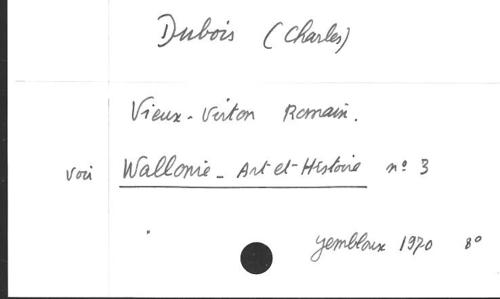 Dubois (Charles)
Vieux-Virton Romain.
voir Wallonie - Art et Histoire n° 3
Gembloux 1970 8°